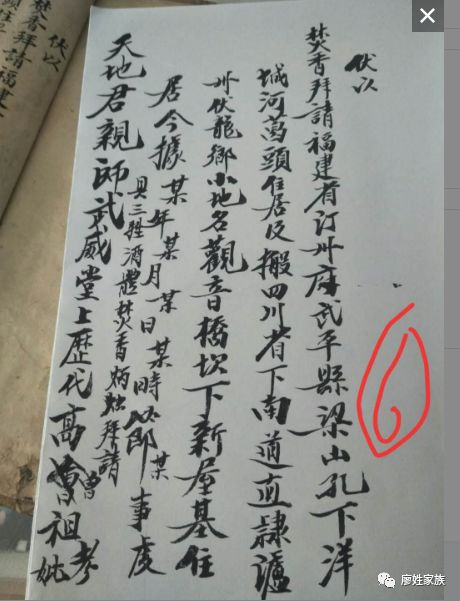 伏以
焚香拜請福建省汀州府武平縣梁山孔下洋
城河萬頭住居反搬四川省下南道直隸瀘
州伏龍鄉小地名觀音橋坎下新屋基住
居今據某年某月某日某時即某事虔
具三牲酒醴焚香炳燭拜請
天地君親師武威堂上歷代高曾曾祖考妣
伏以
焚香拜請福建
廖姓家族